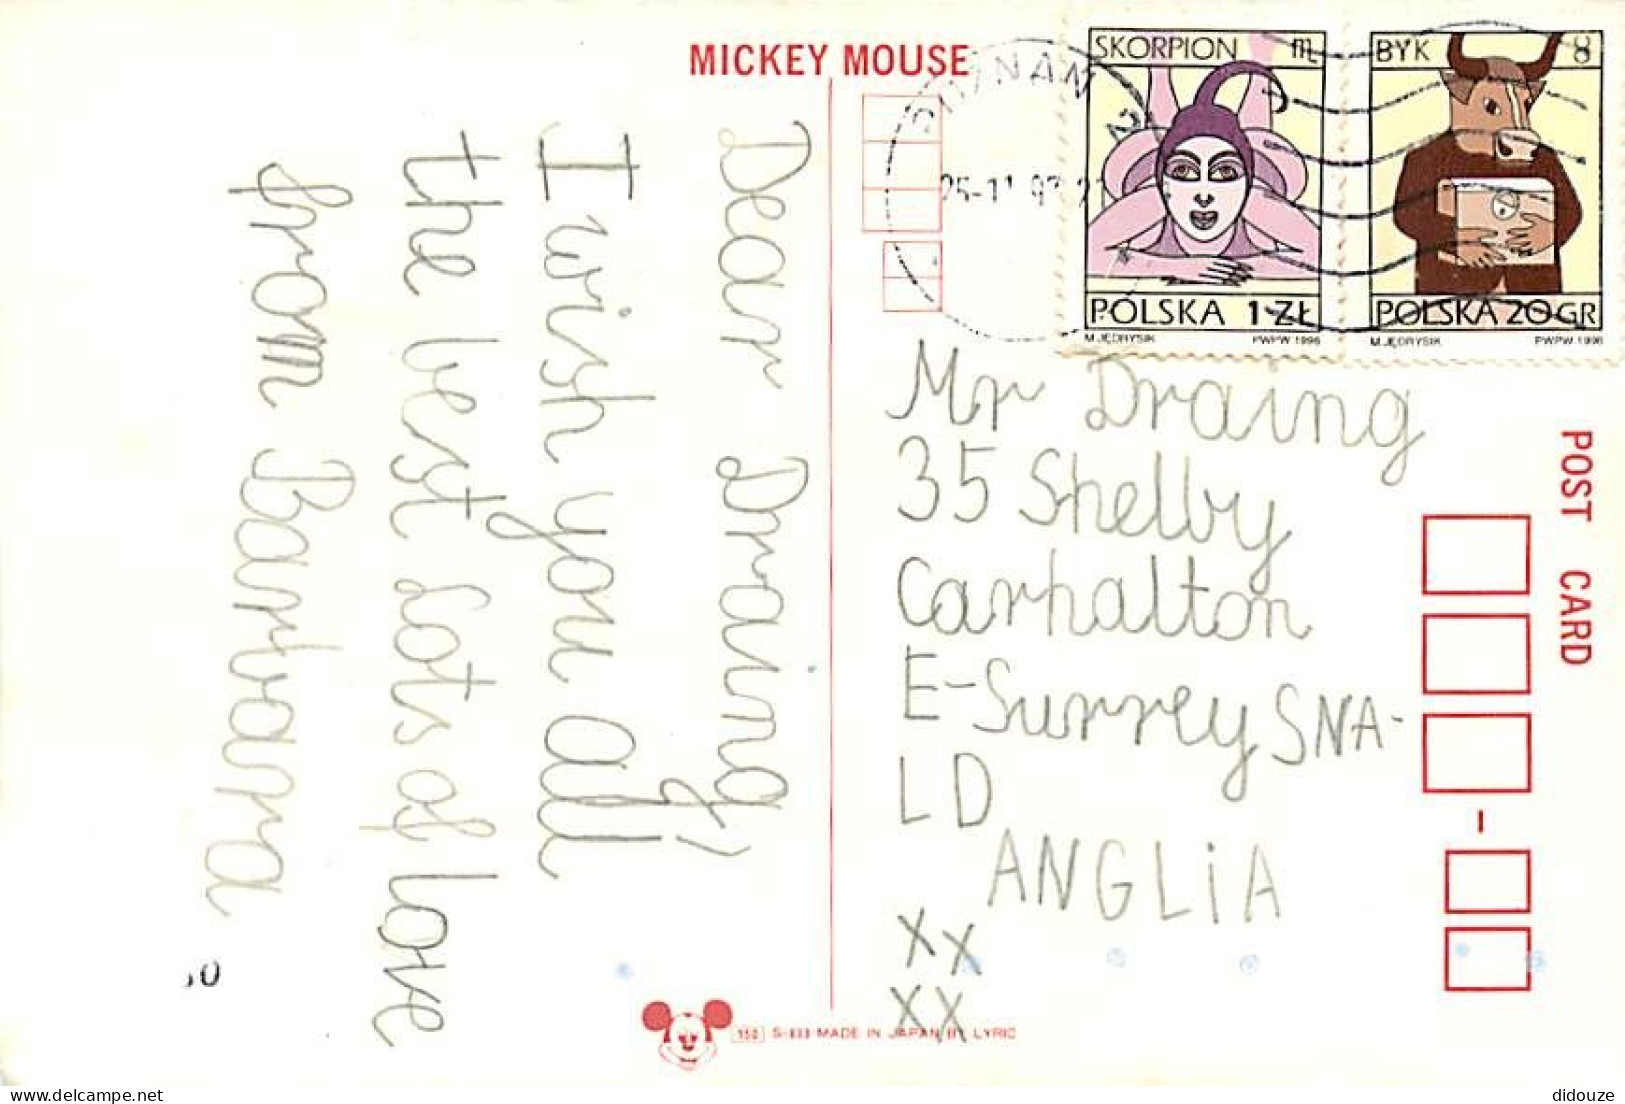 MICKEY MOUSE
SKORPION ♏
POLSKA 1 ZŁ
M. JĘDRYSIK PWPW 1996
BYK ♉
POLSKA 20 GR
M. JĘDRYSIK PWPW 1996
Dear Draing,
I wish you all
the best Lots of love
from Barbara
Mr Draing
35 Shelby
Carhalton
E-Surrey SNA-
LD
ANGLiA
XX
XX
POST CARD
150 S-833 MADE IN JAPAN BY LYRIC
delcampe.net
didouze